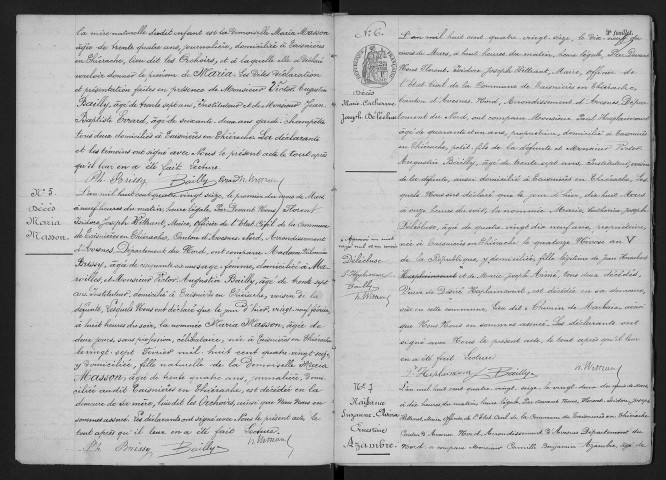 la mère naturelle dudit enfant est la Demoiselle Maria Masson
âgée de trente quatre ans, journalière, domiciliée à Taisnières
en Thiérache, lieu dit les Orchoirs, et à laquelle elle a déclaré
vouloir donner le prénom de Maria. Les dites déclaration
et présentation faites en présence de Monsieur Victor Augustin
Bailly, âgé de trente sept ans, Instituteur et de Monsieur Jean
Baptiste Evrard, âgé de soixante deux ans garde champêtre
tous deux domiciliés à Taisnières en Thiérache. La déclarante
et les témoins ont signé avec Nous le présent acte le tout après
qu'il leur en a été fait lecture.
Ph. Brissy Bailly
N° 5.
Décès
Maria
Masson.
L'an mil huit cent quatre vingt seize, le premier du mois de Mars
à neuf heures du matin, heure légale, Par Devant Nous Florent
Isidore Joseph Hillrant, Maire, officier de l'Etat Civil de la Commune
de Taisnières en Thiérache, Canton d'Avesnes Nord, Arrondissement
d'Avesnes, Département du Nord, ont comparu Madame
Brissy, âgée de cinquante ans sage-femme, domiciliée à Ma
roilles, et Monsieur Victor Augustin Bailly, âgé de trente sept
ans Instituteur, domicilié à Taisnières en Thiérache, voisin de la
défunte, Lesquels Nous ont déclaré que le jour d'hier, vingt neuf février
à huit heures du soir, la nommée Maria Masson, âgée de
deux jours, sans profession, célibataire, née à Taisnières en Thiérache
le vingt sept Février mil huit cent quatre vingt seize
y domiciliée, fille naturelle de la Demoiselle Maria
Masson, âgée de trente quatre ans, journalière, domi
ciliée audit Taisnières en Thiérache, est décédée en la
demeure de sa mère, lieu dit les Orchoirs, ainsi que Nous Nous en
sommes assuré. Les déclarants ont signé avec Nous le présent acte le
tout après qu'il leur en a été fait lecture.
Ph. Brissy Bailly
3e feuillet.
N° 6.
Décès
Marie Catherine
Joseph Deléchuse
L'an mil huit cent quatre vingt seize, le dix neuf du
mois de Mars, à huit heures du matin, heure légale, Par Devant
Nous Florent Isidore Joseph Hillrant, Maire, officier de
l'Etat Civil de la Commune de Taisnières en Thiérache,
Canton d'Avesnes Nord, Arrondissement d'Avesnes Dépar
tement du Nord, ont comparu Monsieur Paul Haplaincourt
âgé de quarante et un ans, propriétaire, domicilié à Taisnières
en Thiérache, petit-fils de la défunte et Monsieur Victor
Augustin Bailly, âgé de trente sept ans, Instituteur, voisin
de la défunte, aussi domicilié à Taisnières en Thiérache. Les
quels Nous ont déclaré que le jour d'hier, dix huit Mars
à onze heures du soir, la nommée Marie, Catherine Joseph
Deléchuse, âgée de quatre vingt dix neuf ans, propriétaire,
née à Taisnières en Thiérache le quatorze Nivose an V
de la République, y domiciliée, fille légitime de Jean
et de Marie Joseph Aimé, tous deux décédés,
Veuve de Désiré Haplaincourt, est décédée en sa demeure,
sise en cette commune, lieu dit Chemin de Marbaix, ainsi
que Nous Nous en sommes assuré. Les déclarants ont
signé avec Nous le présent acte, le tout après qu'il leur
en a été fait lecture
P. Haplaincourt Bailly
N° 7
Naissance
Suzanne
Ernestine
Azambre.
L'an mil huit cent quatre vingt seize, le vingt deux du mois de Mars
à dix heures du matin, heure légale Par Devant Nous, Florent Isidore Joseph
Hillrant, Maire, Officier de l'Etat Civil de la Commune de Taisnières en Thiérache
Canton d'Avesnes Nord, Arrondissement d'Avesnes, Département du
Nord, a comparu Monsieur Camille Benjamin Azambre, âgé de